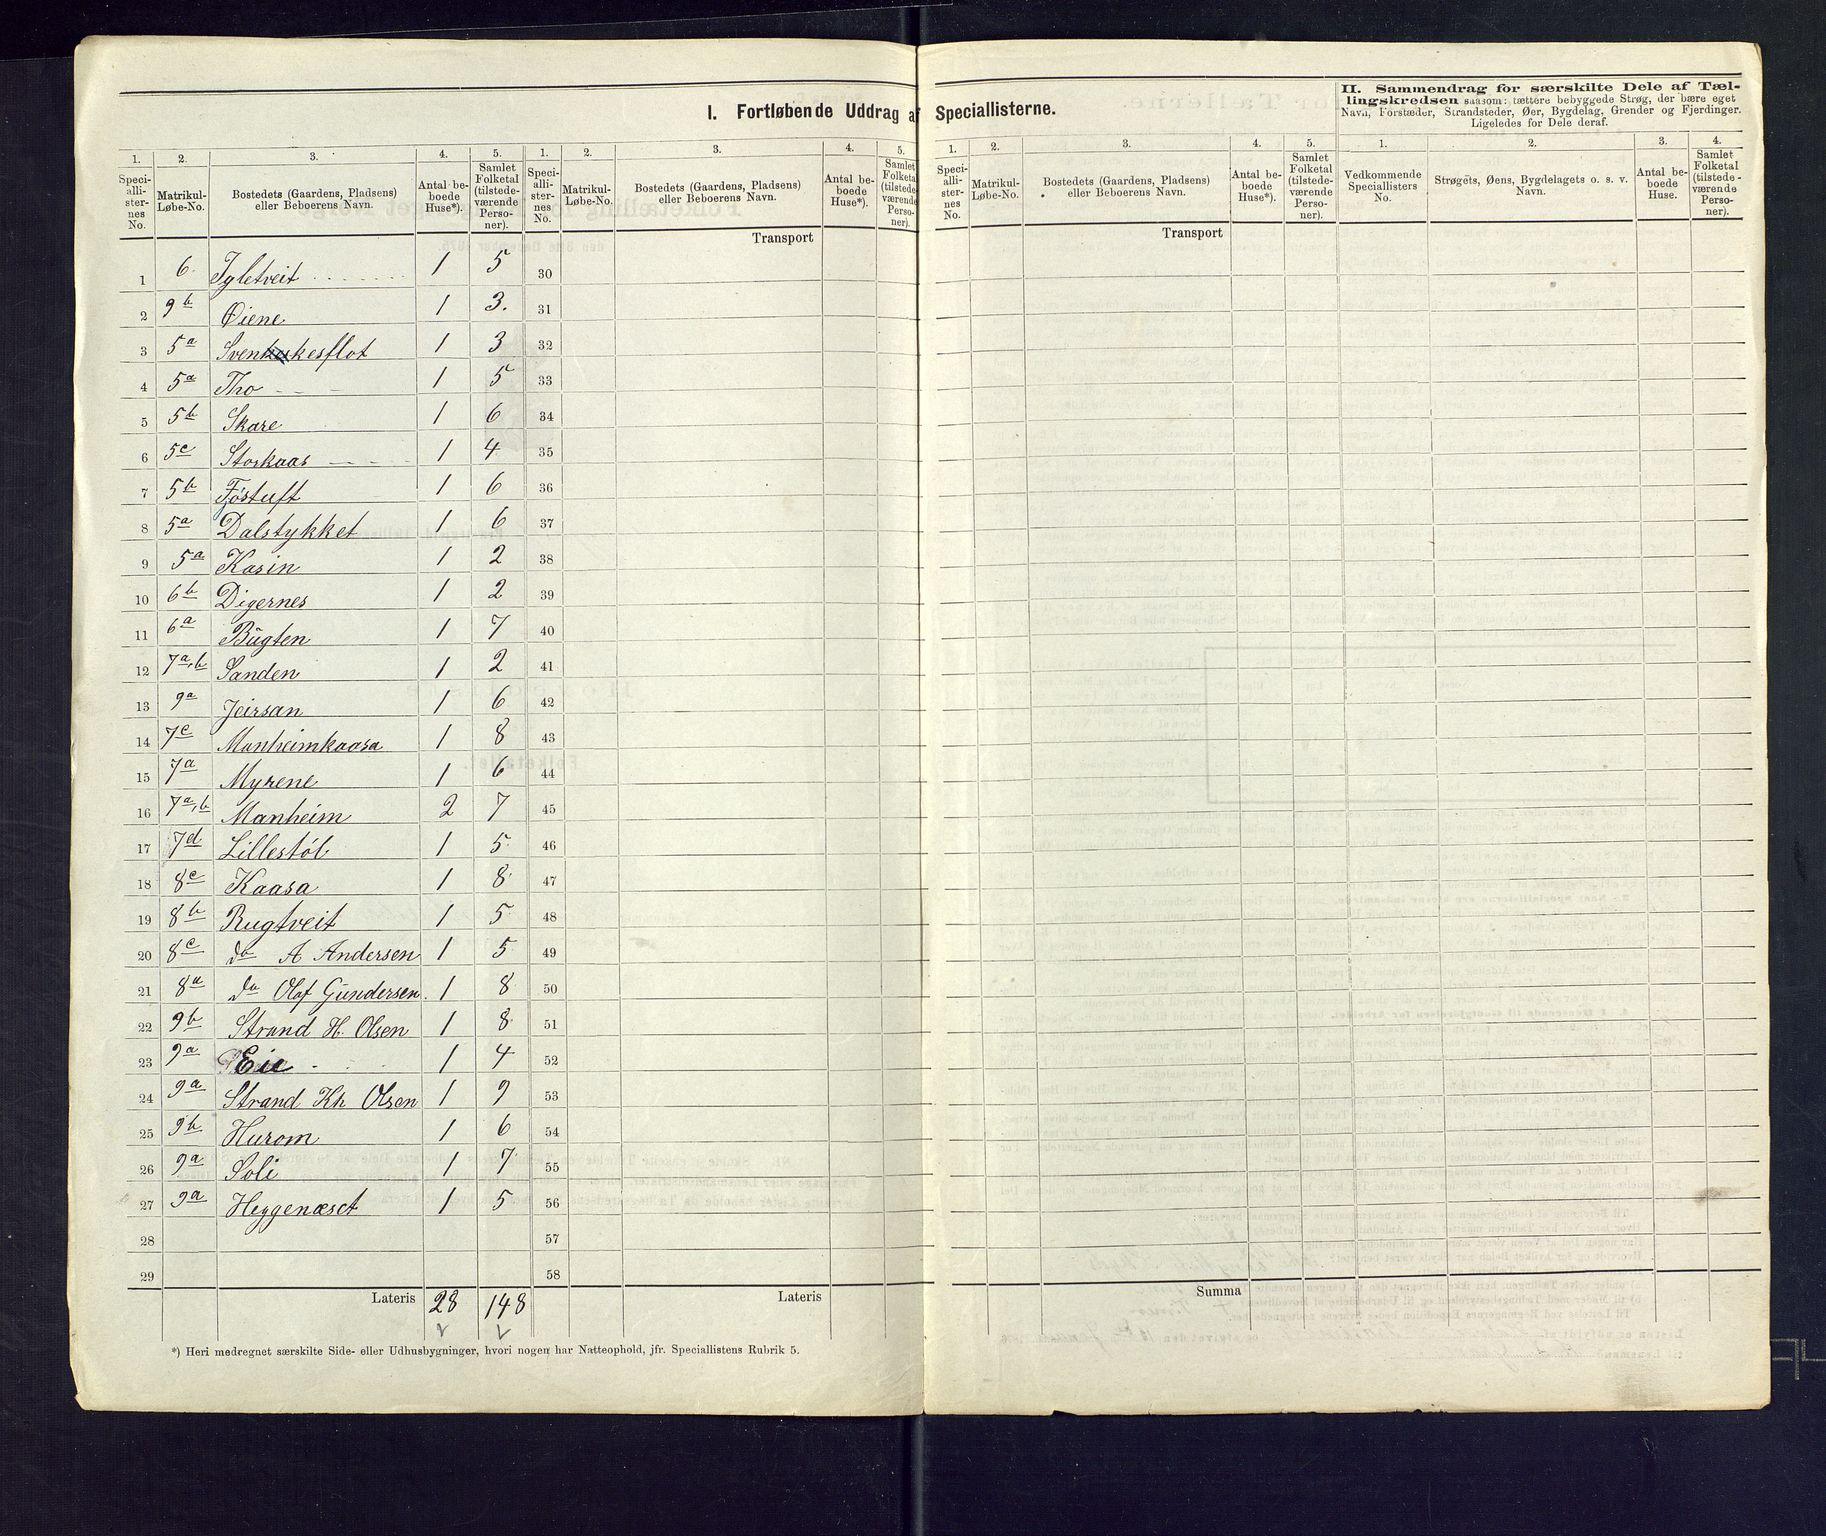 I. Fortløbende Uddrag af Speciallisterne.
II. Sammendrag for særskilte Dele af Tæl-
lingskredsen saasom: tættere bebyggede Strøg, der bære eget
Navn, Forstæder, Strandsteder, Øer, Bygdelag, Grender og Fjerdinger.
Ligeledes for Dele deraf.
1. 2. 3. 4. 5. 1. 2. 3. 4. 5. 1. 2. 3. 4. 5. 1. 2. 3. 4.
Speci-alli-ster-nes No. Matrikul-Løbe-No. Bostedets (Gaardens, Pladsens) eller Beboerens Navn. Antal be-boede Huse*). Samlet Folketal (tilstede-værende Perso-ner).
Speci-alli-ster-nes No. Matrikul-Løbe-No. Bostedets (Gaardens, Pladsens) eller Beboerens Navn. Antal be-boede Huse*). Samlet Folketal (tilstede-værende Perso-ner).
Speci-alli-ster-nes No. Matrikul-Løbe-No. Bostedets (Gaardens, Pladsens) eller Beboerens Navn. Antal be-boede Huse*). Samlet Folketal (tilstede-værende Perso-ner).
Vedkommende Speciallisters No. Strøgets, Øens, Bygdelagets o. s. v. Navn. Antal be-boede Huse. Samlet Folketal (tilstede-værende Perso-ner).
Transport Transport
1 6. Tyletveit 1 5 30
2 9b Øiene 1 3. 31
3 5a kesflot 1 3 32
4 5a Tho 1 5 33
5 5b Skare 1 6 34
6 5c Storkaas 1 4 35
7 5b Føstuft 1 6 36
8 5a Dalstykket 1 6 37
9 5a Kasin 1 2 38
10 6b Digernes 1 2 39
11 6a Bügten 1 7 40
12 7a,b Sanden 1 2 41
13 9a Jeirsan 1 6 42
14 7c Manheimkaasa 1 8 43
15 7a Myrene 1 6 44
16 7a,b Manheim 2 7 45
17 7d Lillestöl 1 5 46
18 8c Kaasa 1 8 47
19 8b Rugtveit 1 5 48
20 8c do A Andersen 1 5 49
21 8a do Olaf Gundersen. 1 8 50
22 9b Strand H. Olsen 1 8 51
23 9a Eie 1 4 52
24 9a Strand Kh Olsen 1 9 53
25 9b Hurom 1 6 54
26 9a Soli 1 7 55
27 9a Heggenæset 1 5 56
28 57
29 58
Lateris 28 148 Lateris Summa
*) Heri medregnet særskilte Side- eller Udhusbygninger, hvori nogen har Natteophold, jfr. Speciallistens Rubrik 5.